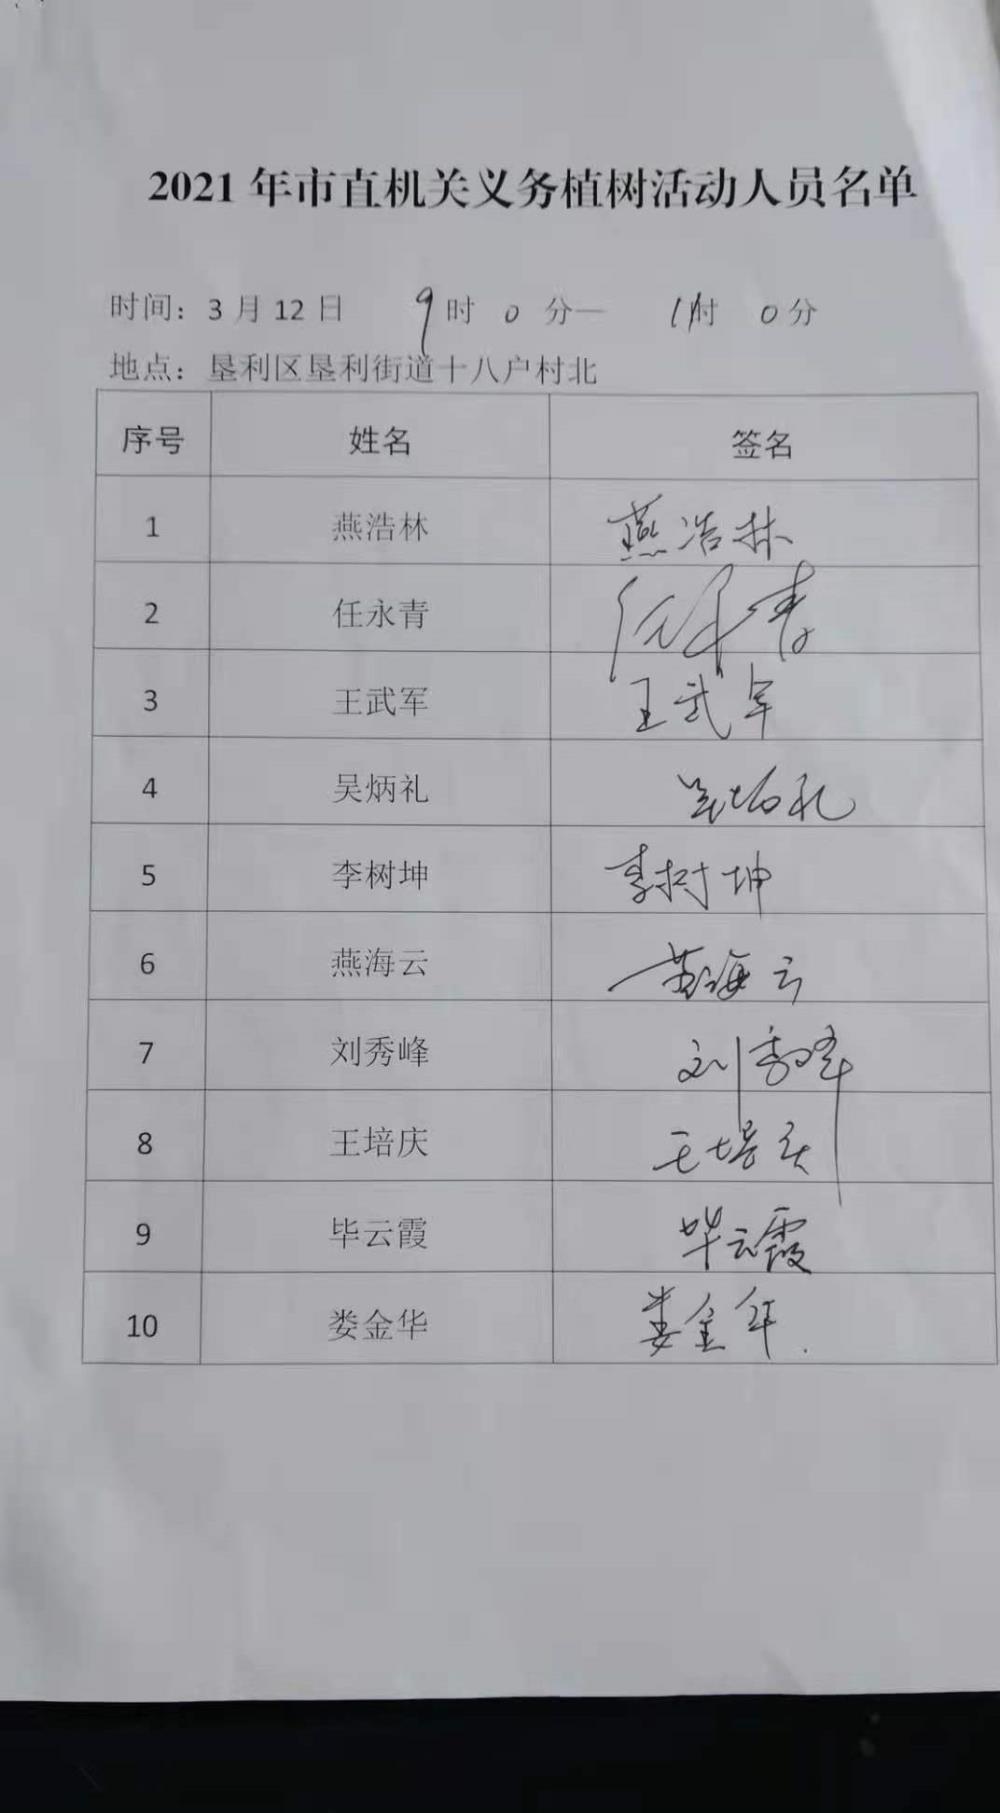 2021年市直机关义务植树活动人员名单
时间：3月12日 9时0分— 11时0分
地点：垦利区垦利街道十八户村北
序号 姓名 签名
1 燕浩林 燕浩林
2 任永青 任永青
3 王武军 王武军
4 吴炳礼 吴炳礼
5 李树坤 李树坤
6 燕海云 燕海云
7 刘秀峰 刘秀峰
8 王培庆 王培庆
9 毕云霞 毕云霞
10 娄金华 娄金华